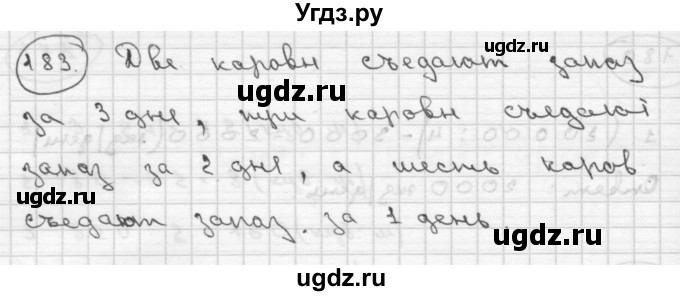 Угдз.ру
183. Две коровы съедают запас
ugdz.ru ugdz.ru
за 3 дня, три коровы съедают
запас за 2 дня, а шесть коров
ugdz.ru
съедают запас за 1 день.
ugdz.ru ugdz.ru